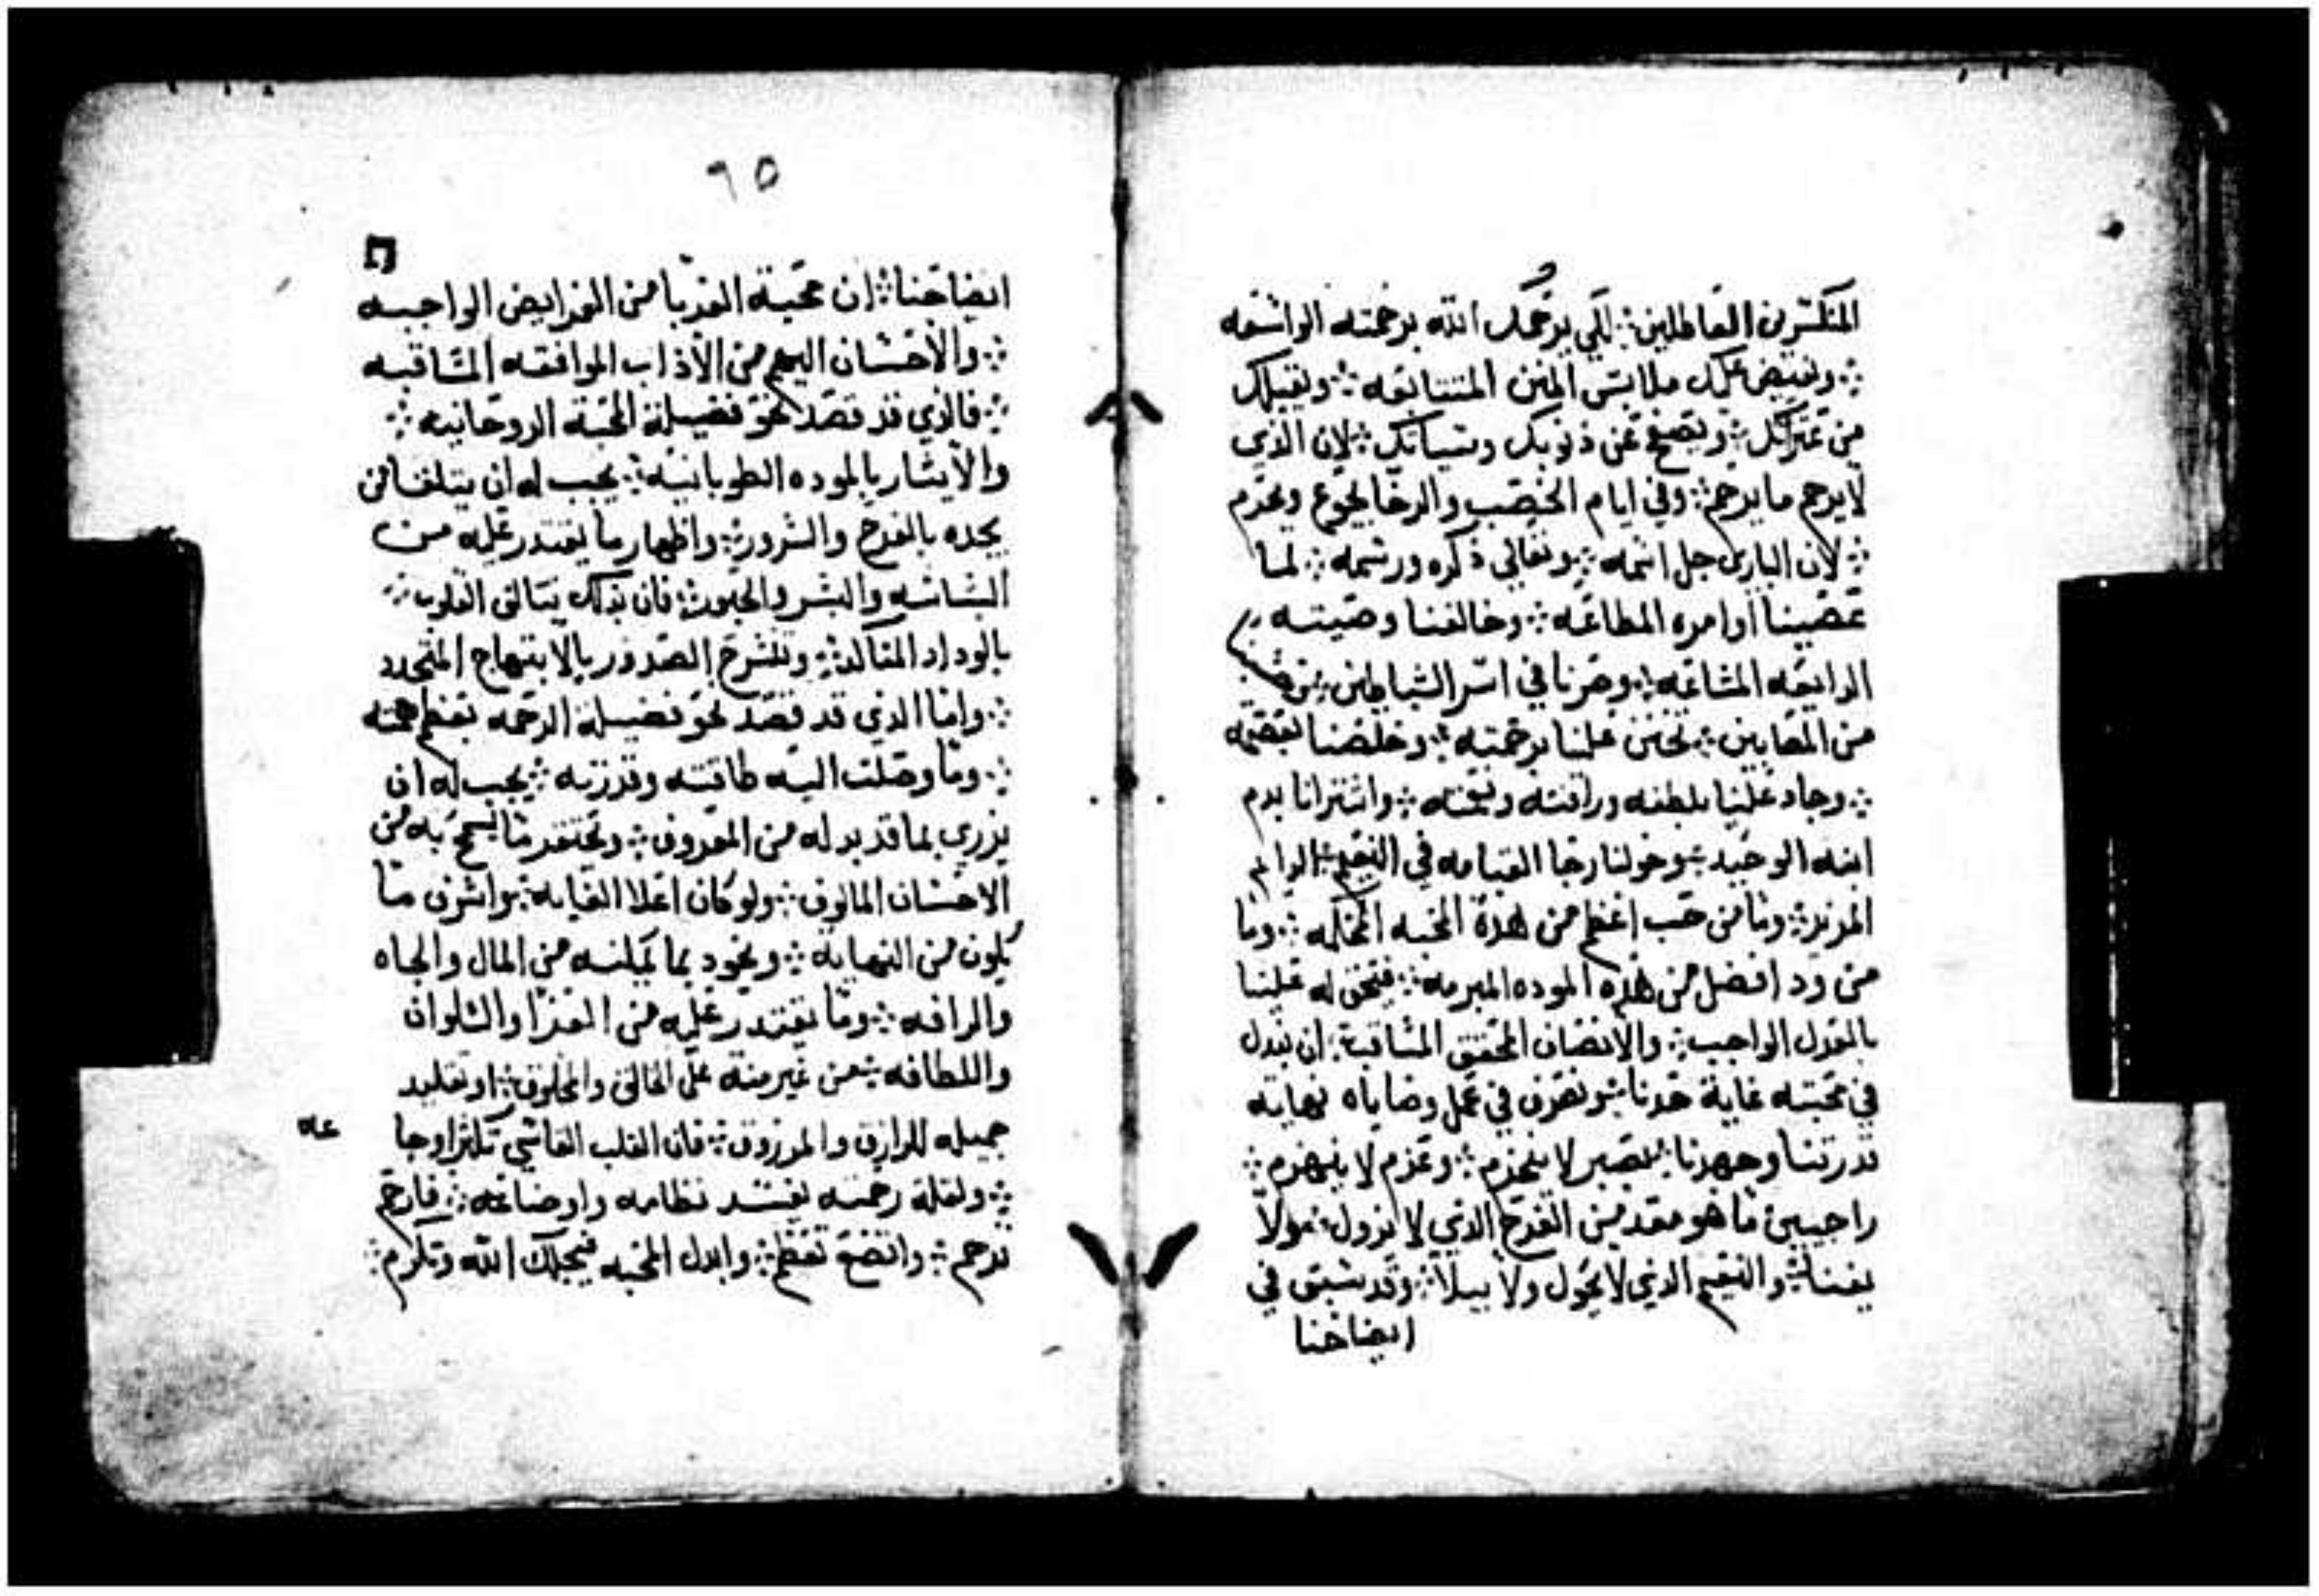 المنكسرين العاملين ؞ لكي يرحمك الله برحمته الواسعه
؞ ويفيض عليك ملابس المنن المتتابعه ؞ ويقيلك
من عثراتك ؞ ويصفح عن ذنوبك وسياتك ؞ لان الذي
لا يرحم ما يرحم ؞ وفي ايام الخصب والرخا يجوع ويحرم
؞ لان الباري جل اسمه ؞ وتعالي ذكره ورسمه ؞ لما
عصينا اوامره المطاعه ؞ وخالفنا وصيته
الرايعه المشاعه ؞ وصرنا في اسر الشياطين
من المعايين ؞ تحنن علينا برحمته ؞ وخلصنا بعصمته
؞ وجاد علينا بلطفه ورافته ونعمته ؞ واشترانا بدم
ابنه الوحيد ؞ وخولنا رجا القيامه في النعيم الدايم
المزيد ؞ وما من حب اعظم من هذة المحبه المحكمه ؞ وما
من ود افضل من هذه الموده المبرمه ؞ فيحق له علينا
بالعدل الواجب ؞ والانصاف المحقق المثاقب ؞ ان نبدل
في محبته غاية حدنا ؞ ونصرف في عمل وصاياه نهاية
قدرتنا وجهدنا ؞ بصبر لا ينخرم ؞ وعزم لا ينهزم ؞
راجيين ما هو معد من الفرح الذي لا يزول ؞ ولا
يفنا ؞ والنعيم الذي لا يحول ولا يبلا ؞ وقد سبق في
ايضاحنا
٦٥
ايضاحنا ؞ ان محبة القربا من الفرايض الواجبه
؞ والاحسان اليهم من الاداب الموافقه المثاقبه
؞ فالذي قد قصد نحو فضيلة المحبة الروحانيه ؞
والايثار بالموده الطوبانيه ؞ يجب له ان يتلقا من
يجده بالفرح والسرور ؞ واظهار ما يقتدر عليه من
البشاشه والبشر والحبور ؞ فان بذلك يتالق القلوب
بالوداد المتاكد ؞ وتنشرح الصدور بالابتهاج المتجدد
؞ واما الذي قد قصد نحو فضيلة الرحمه بعظم همته
؞ وما وصلت اليه طاقته وقدرته ؞ يجب له ان
يزري بما قد بدله من المعروف ؞ ويحتقر ما يسمح به من
الاحسان المالوف ؞ ولو كان اعلا الغايه ؞ واشرف ما
يكون من النهايه ؞ ويجود بما يمكنه من المال والجاه
والرافه ؞ وما يقتدر عليه من العزا والسلوان
واللطافه ؞ من غير منه علي الخالق والمخلوق ؞ او تقليد
جميله للرازق والمرزوق ؞ فان القلب القاسي تكثر اوجاعه
؞ ولقلة رحمته يفسد نظامه واوضاعه ؞ فارحم
ترحم ؞ واتضع تعظم ؞ وابدل المحبه فيحبك الله وتكرم ؞